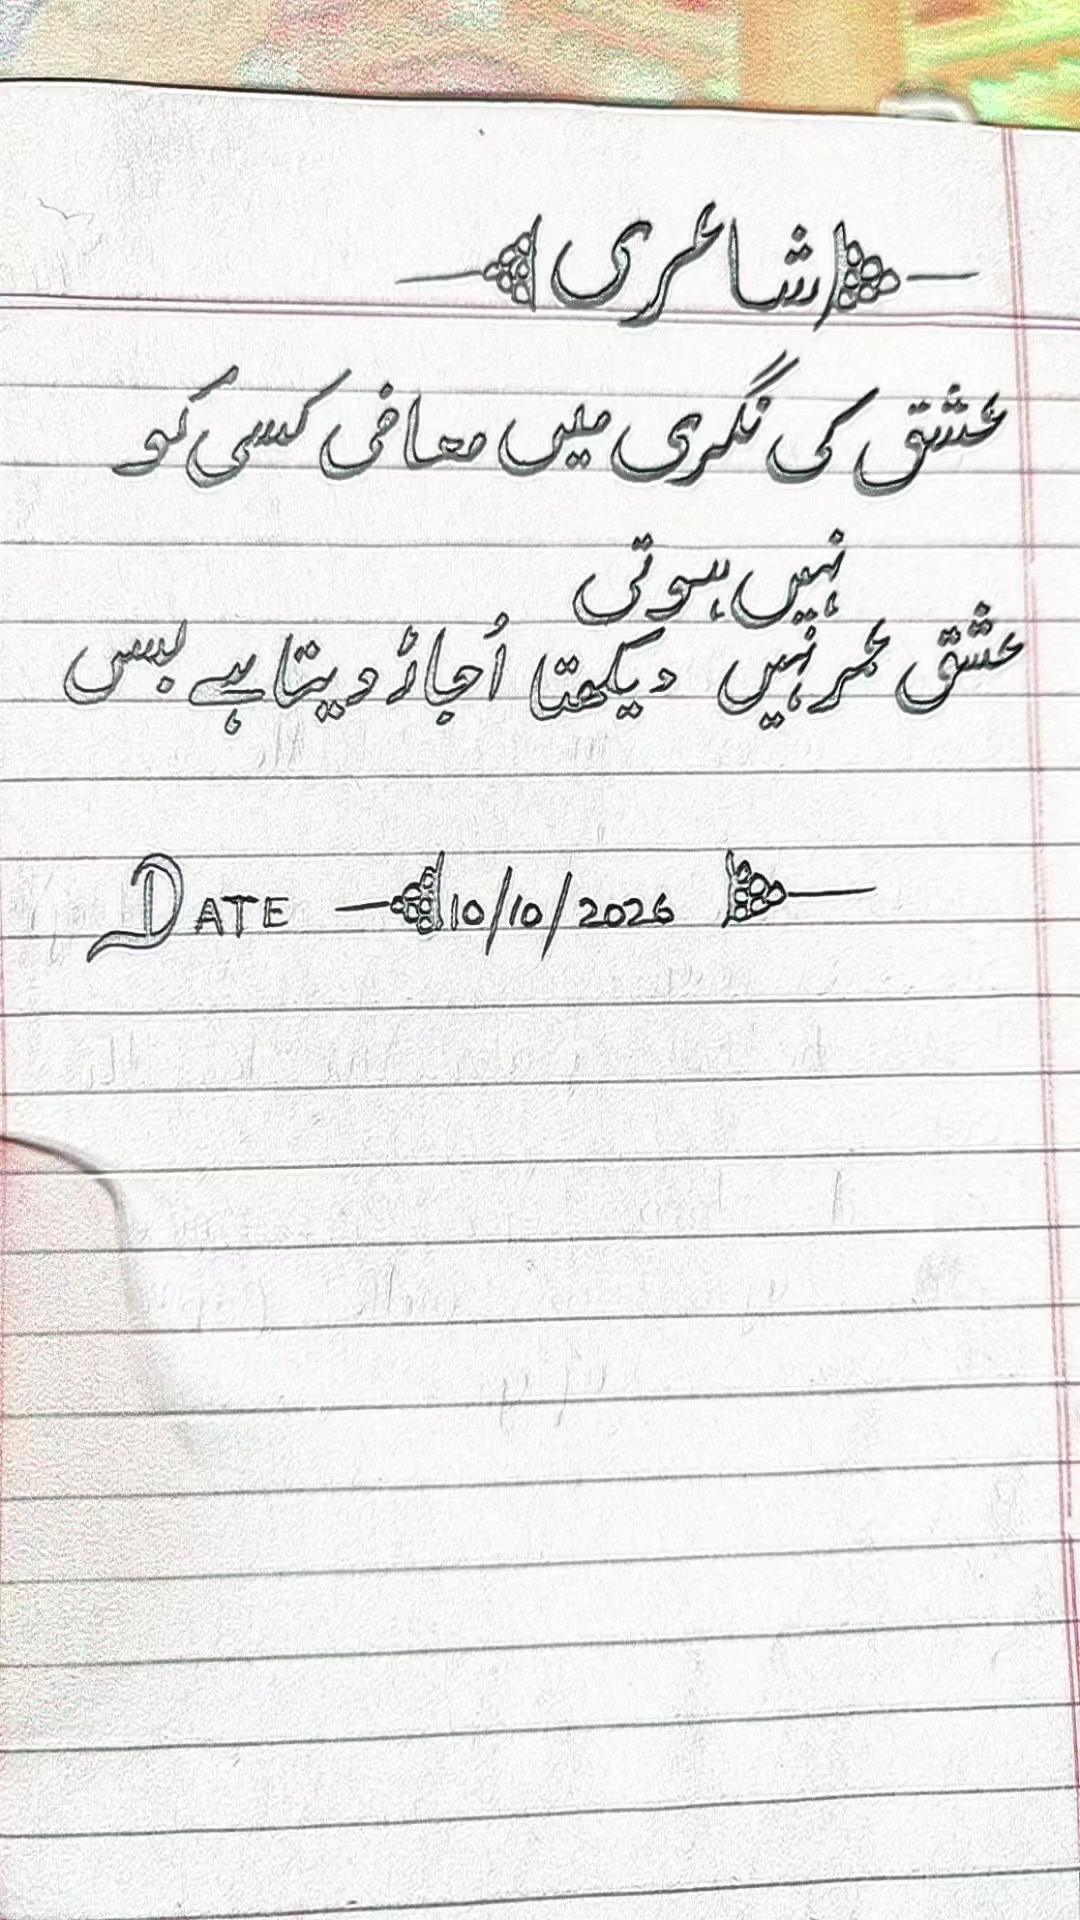 شاعری
عشق کی نگری میں معافی کسی کو
نہیں ہوتی
عشق عمر نہیں دیکھتا اُجاڑ دیتا ہے بس
DATE 10/10/2026